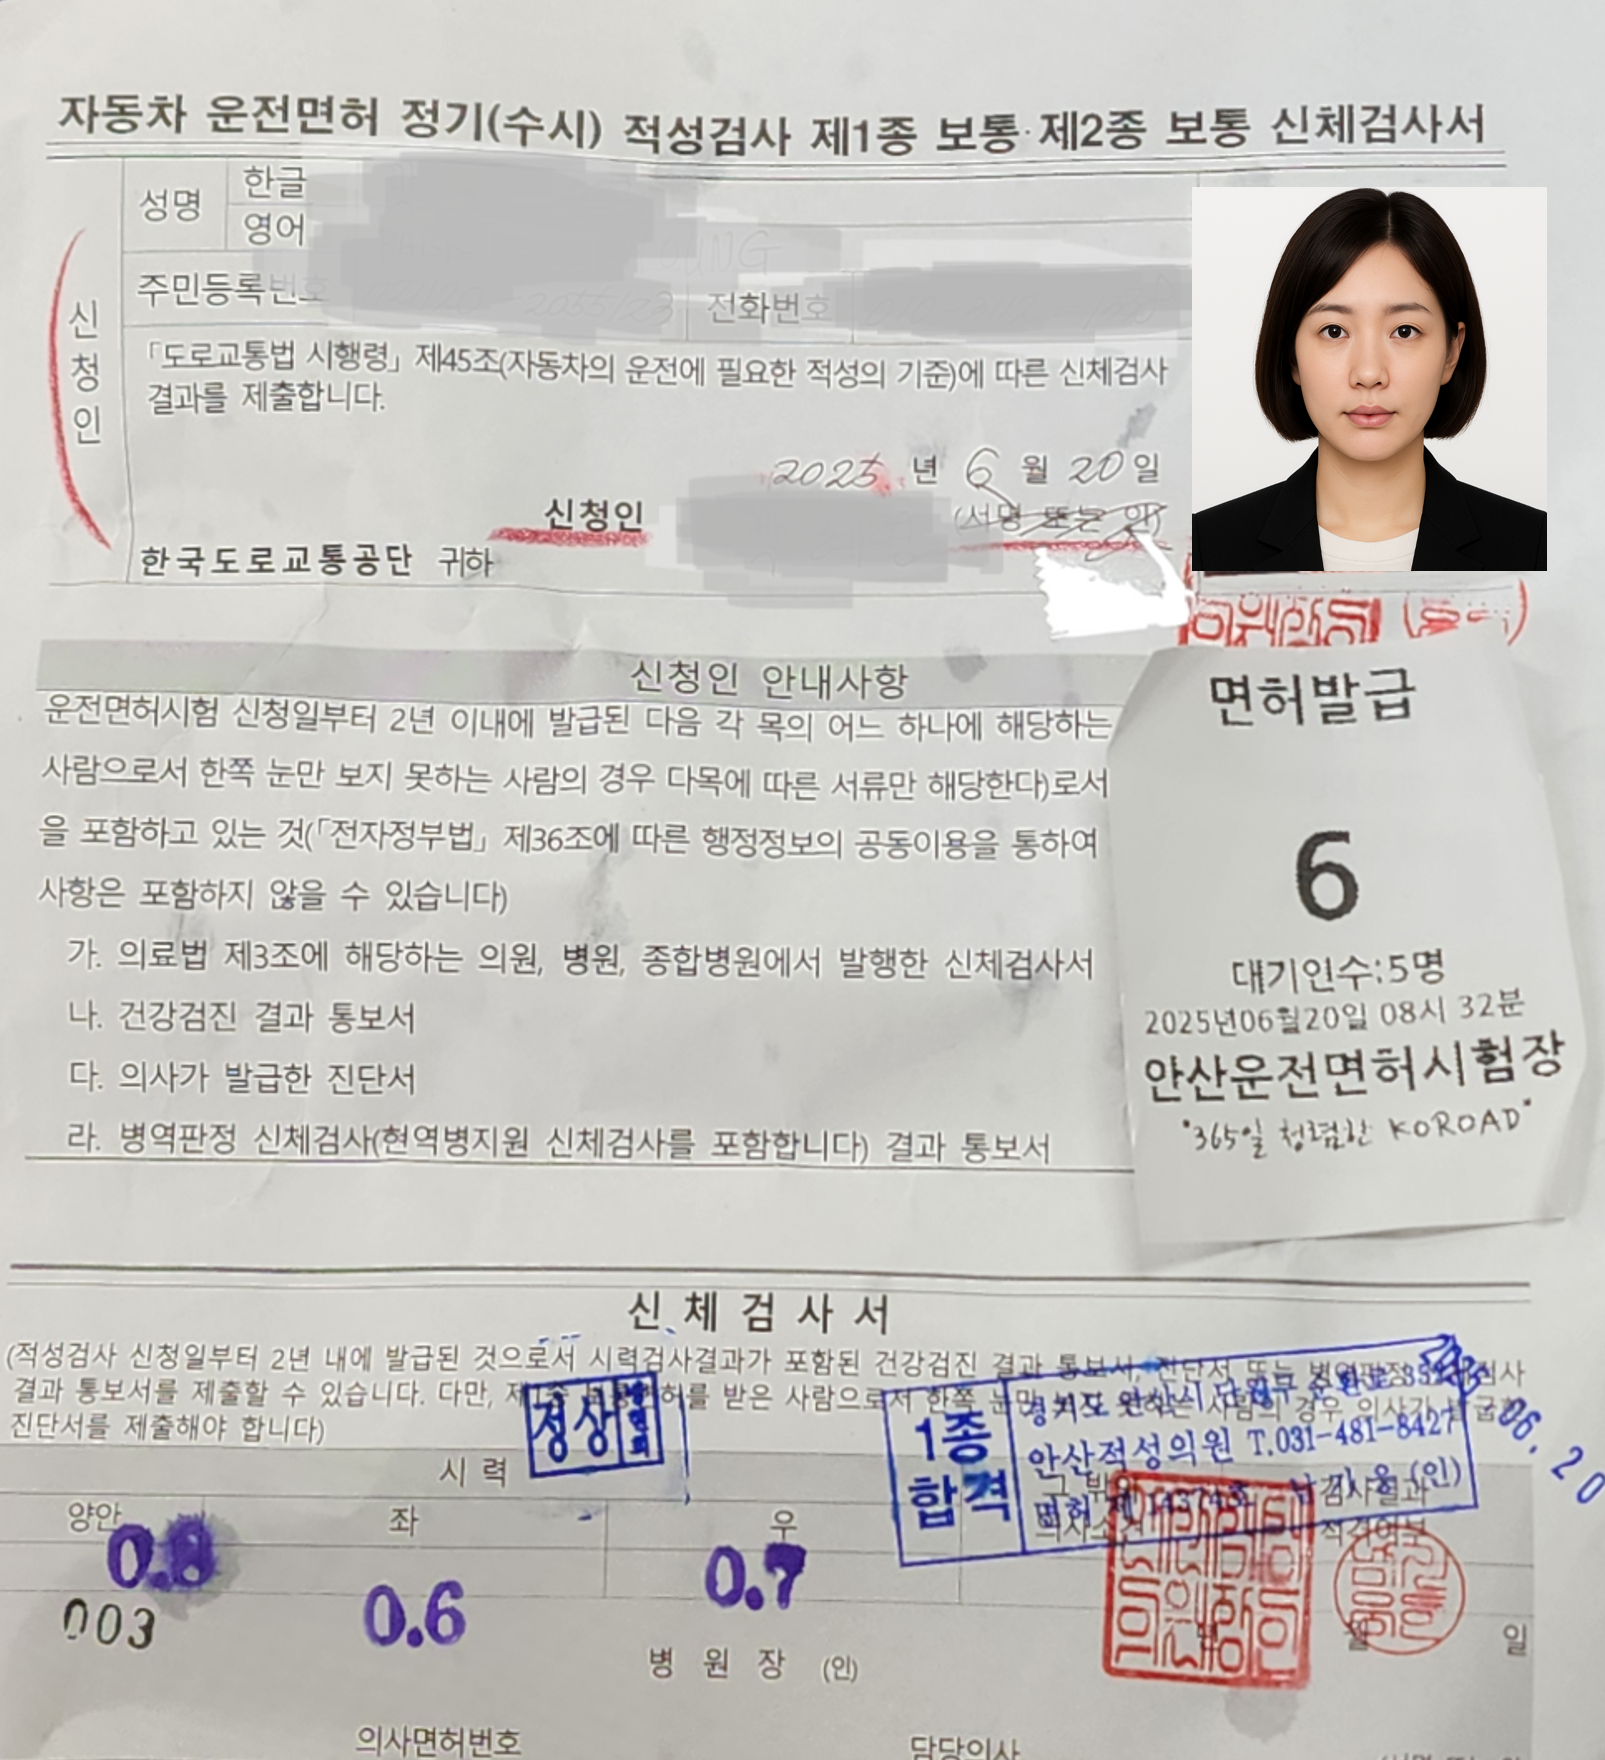 자동차 운전면허 정기(수시) 적성검사 제1종 보통·제2종 보통 신체검사서
신청인
성명
한글
영어
주민등록번호
전화번호
「도로교통법 시행령」 제45조(자동차의 운전에 필요한 적성의 기준)에 따른 신체검사
결과를 제출합니다.
2025 년 6 월 20일
신청인
(서명 또는 인)
한국도로교통공단 귀하
신청인 안내사항
운전면허시험 신청일부터 2년 이내에 발급된 다음 각 목의 어느 하나에 해당하는
사람으로서 한쪽 눈만 보지 못하는 사람의 경우 다목에 따른 서류만 해당한다)로서
을 포함하고 있는 것(「전자정부법」 제36조에 따른 행정정보의 공동이용을 통하여
사항은 포함하지 않을 수 있습니다)
가. 의료법 제3조에 해당하는 의원, 병원, 종합병원에서 발행한 신체검사서
나. 건강검진 결과 통보서
다. 의사가 발급한 진단서
라. 병역판정 신체검사(현역병지원 신체검사를 포함합니다) 결과 통보서
면허발급
6
대기인수:5명
2025년06월20일 08시 32분
안산운전면허시험장
"365일 청렴한 KOROAD"
신 체 검 사 서
(적성검사 신청일부터 2년 내에 발급된 것으로서 시력검사결과가 포함된 건강검진 결과 통보서, 진단서 또는 병역판정 검사
결과 통보서를 제출할 수 있습니다. 다만, 제1종 보통면허를 받은 사람으로서 한쪽 눈만 보지 못하는 사람의 경우 의사가 발급한
진단서를 제출해야 합니다)
정상
1종
합격
경기도 안산시 단원구
안산적성의원 T.031-481-8427
면허 제
(인)
06. 20
시 력
양안
좌
우
그 밖의
의사소견
검사결과
적격여부
0.8
0.6
0.7
003
년 월 일
병 원 장 (인)
의사면허번호
담당의사